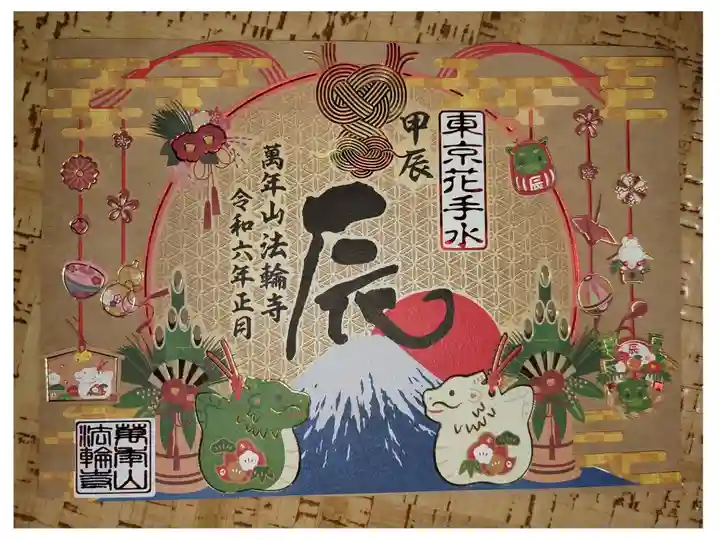 東京花手水
甲辰
辰
萬年山法輪寺
令和六年正月
辰
辰
萬年山
法輪寺